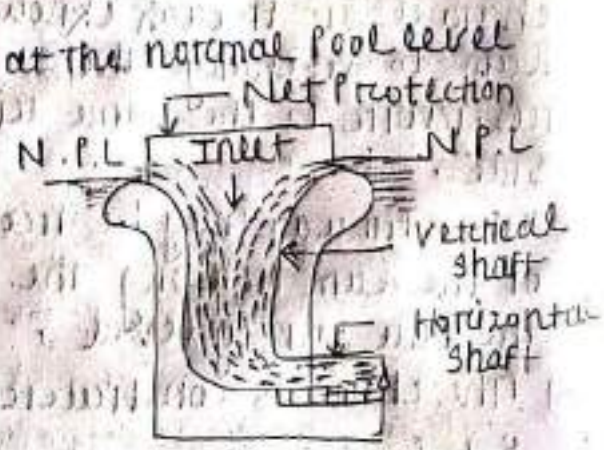 at the normal pool level
Net Protection
N.P.L Inlet N.P.L
vertical
shaft
Horizontal
shaft